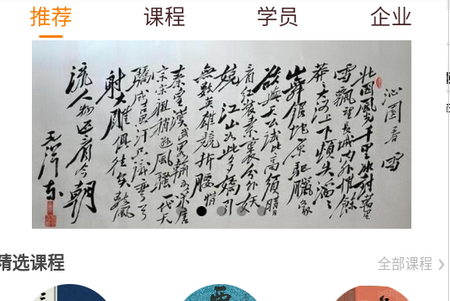 推荐
课程
学员
企业
沁园春 雪
北国风光千里冰封万里
雪飘望长城内外惟余
莽莽大河上下顿失滔滔
山舞银蛇原驰蜡象
欲与天公试比高须晴
日看红装素裹分外妖
娆江山如此多娇引
无数英雄竞折腰惜
秦皇汉武略输文采唐
宗宋祖稍逊风骚一代天
骄成吉思汗只识弯弓
射大雕俱往矣数风
流人物还看今朝
毛泽东
精选课程
全部课程